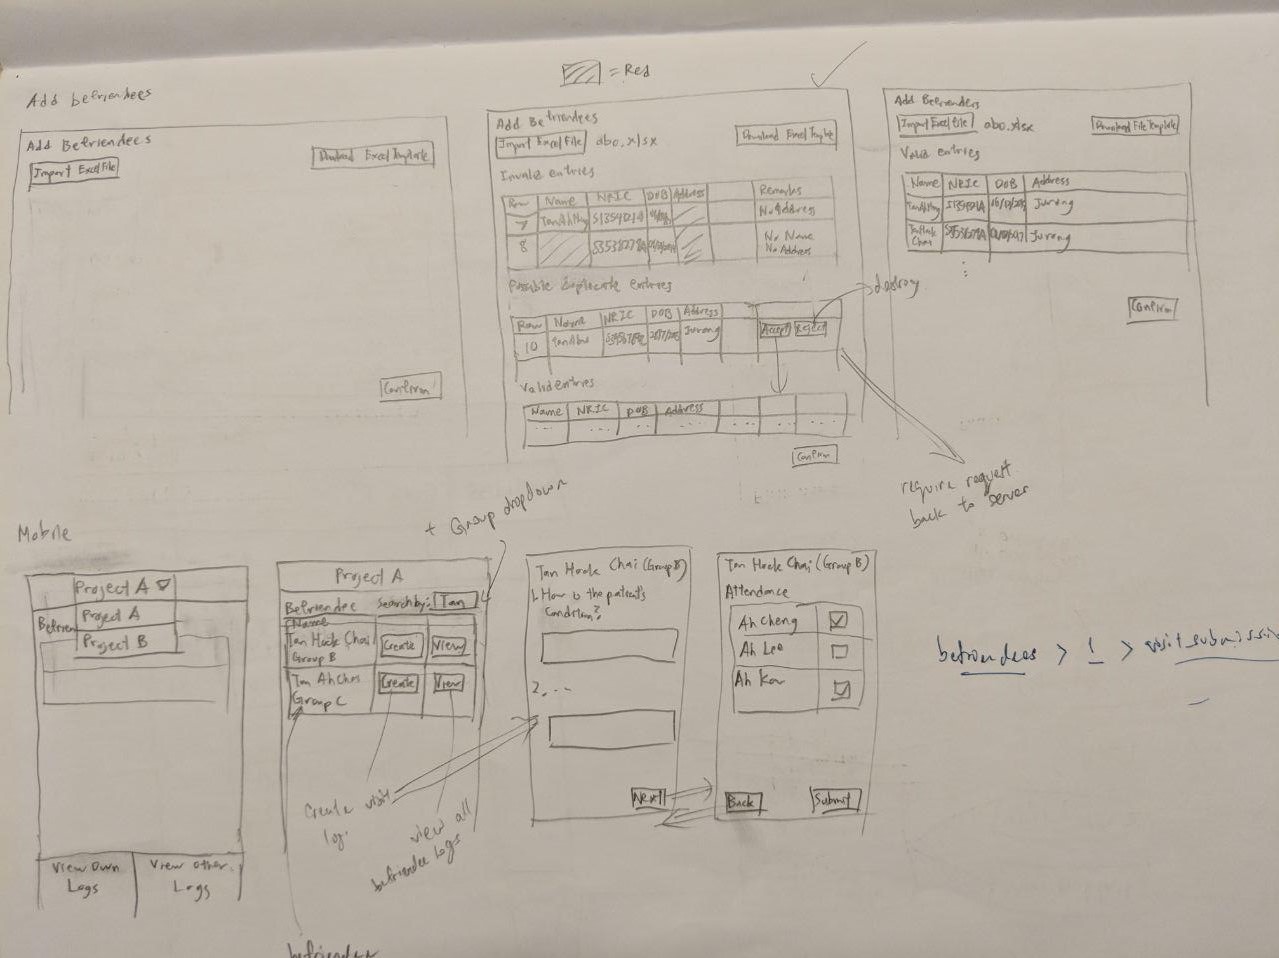 = Red
Add befriendees
Add Befriendees
Import Excel File
Download Excel Template
Confirm
Add Befriendees
Import Excel File
abo.xlsx
Download Excel Template
Invalid entries
Row Name NRIC DOB Address Remarks
7 No Address
8 No Name
No Address
Possible duplicate entries
Row Name NRIC DOB Address
10 Jurong Accept Reject
destroy
Valid entries
Name NRIC DOB Address
... ... ... ... ... ... ...
Confirm
require request
back to server
Add Befrienders
Import Excel File
abo.xlsx
Download File Template
Valid entries
Name NRIC DOB Address
Jurong
Jurong
Confirm
Mobile
Project A
Project A
Project B
View Own
Logs
View Other
Logs
+ Group dropdown
Project A
Befriendee
Name
Search by: Tan
Tan Hock Chai
Group B
Create View
Tan Ah
Group C
Create View
Create visit
log.
view all
befriendee logs
Tan Hock Chai (Group B)
1. How is the patient's
condition?
2. ...
Next
Tan Hock Chai (Group B)
Attendance
Ah Cheng
Ah Lee
Ah Kow
Back Submit
befriendees > 1 >